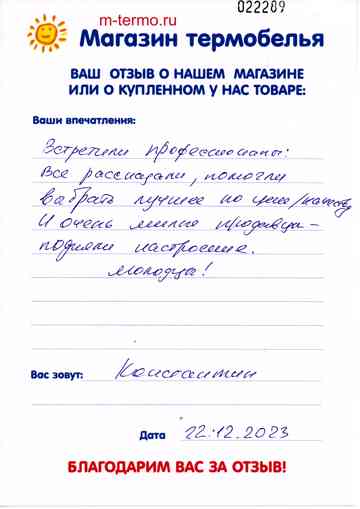 022289
m-termo.ru
Магазин термобелья
ВАШ ОТЗЫВ О НАШЕМ МАГАЗИНЕ
ИЛИ О КУПЛЕННОМ У НАС ТОВАРЕ:
Ваши впечатления:
Встретили профессионалы!
Все рассказали, помогли
выбрать лучшее по цене/качеству
И очень милые продавцы -
подняли настроение.
Молодцы!
Вас зовут: Константин
Дата 22.12.2023
БЛАГОДАРИМ ВАС ЗА ОТЗЫВ!